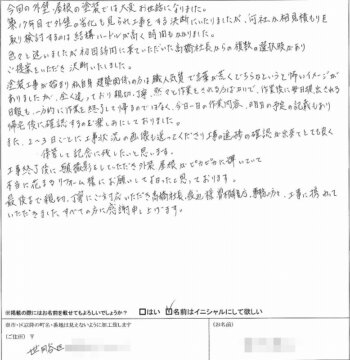 今回の外壁、屋根の塗装では大変お世話になりました。
築17年目で外壁の劣化も見られ工事をする決断にいたりましたが、何社か相見積もりを
取り検討するのは結構ハードルが高く時間もかかりました。
色々と迷いましたが初回訪問に来ていただいた高橋社長からの複数の選択肢があり
ご提案をいただき決断いたしました。
塗装工事が始まり私自身、建築関係の方は職人気質で言葉が荒くどちらかというと怖いイメージが
ありましたが、全く違っており親切、丁寧、黙々と作業をされる方ばかりで、作業後に毎日提出される
日報も、一方的に作業を終了して帰るのではなく、今日一日の作業内容、明日の予定の記載もあり
帰宅後に確認するのを楽しみにしておりました。
また、2〜3日ごとに工事状況の画像も送ってくださり工事の進捗の確認が出来てとても良く
保管して記念に残したいと思います。
工事終了後に、撮影をしていただき外装、屋根がピカピカに輝いていて
本当に花まるリフォーム様にお願いして良かったと思っております。
最後まで親切、丁寧にご対応いただき高橋社長、渡辺様、工事に携わって
いただきました、すべての方に感謝申し上げます。
※掲載の際にはお名前を載せてもよろしいでしょうか？ □はい ☑名前はイニシャルにして欲しい
※市・区以降の町名・番地は見えないように加工致します
（ご住所）
（お名前）
世田谷区